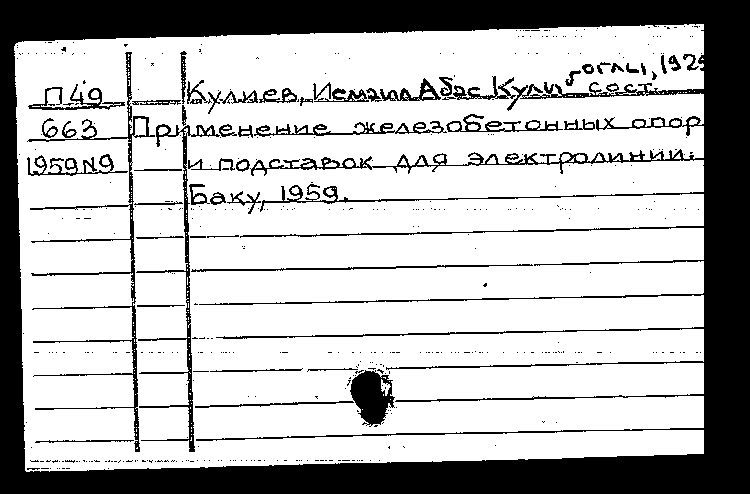 П49 Кулиев, Исмаил Аббас Кули оглы, 1925 сост.
663 Применение железобетонных опор
1959N9 и подставок для электролинии.
Баку, 1959.